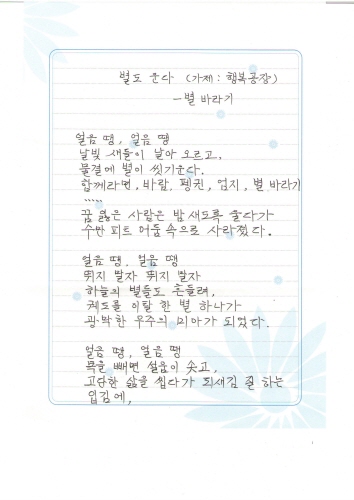 별도 운다 (가제 : 행복공장)
- 별 바라기
얼음 땡, 얼음 땡
날빛 새들이 날아 오르고,
물결에 별이 씻기운다.
함께라면, 바람, 펭귄, 엄지, 별 바라기
.....
꿈 잃은 사람은 밤 새도록 울다가
수만 피트 어둠 속으로 사라졌다.
얼음 땡, 얼음 땡
뛰지 말자 뛰지 말자
하늘의 별들도 흔들려,
궤도를 이탈 한 별 하나가
광박한 우주의 미아가 되었다.
얼음 땡, 얼음 땡
목을 빼면 설움이 솟고,
고단한 삶을 씹다가 되새김 질 하는
입김에,